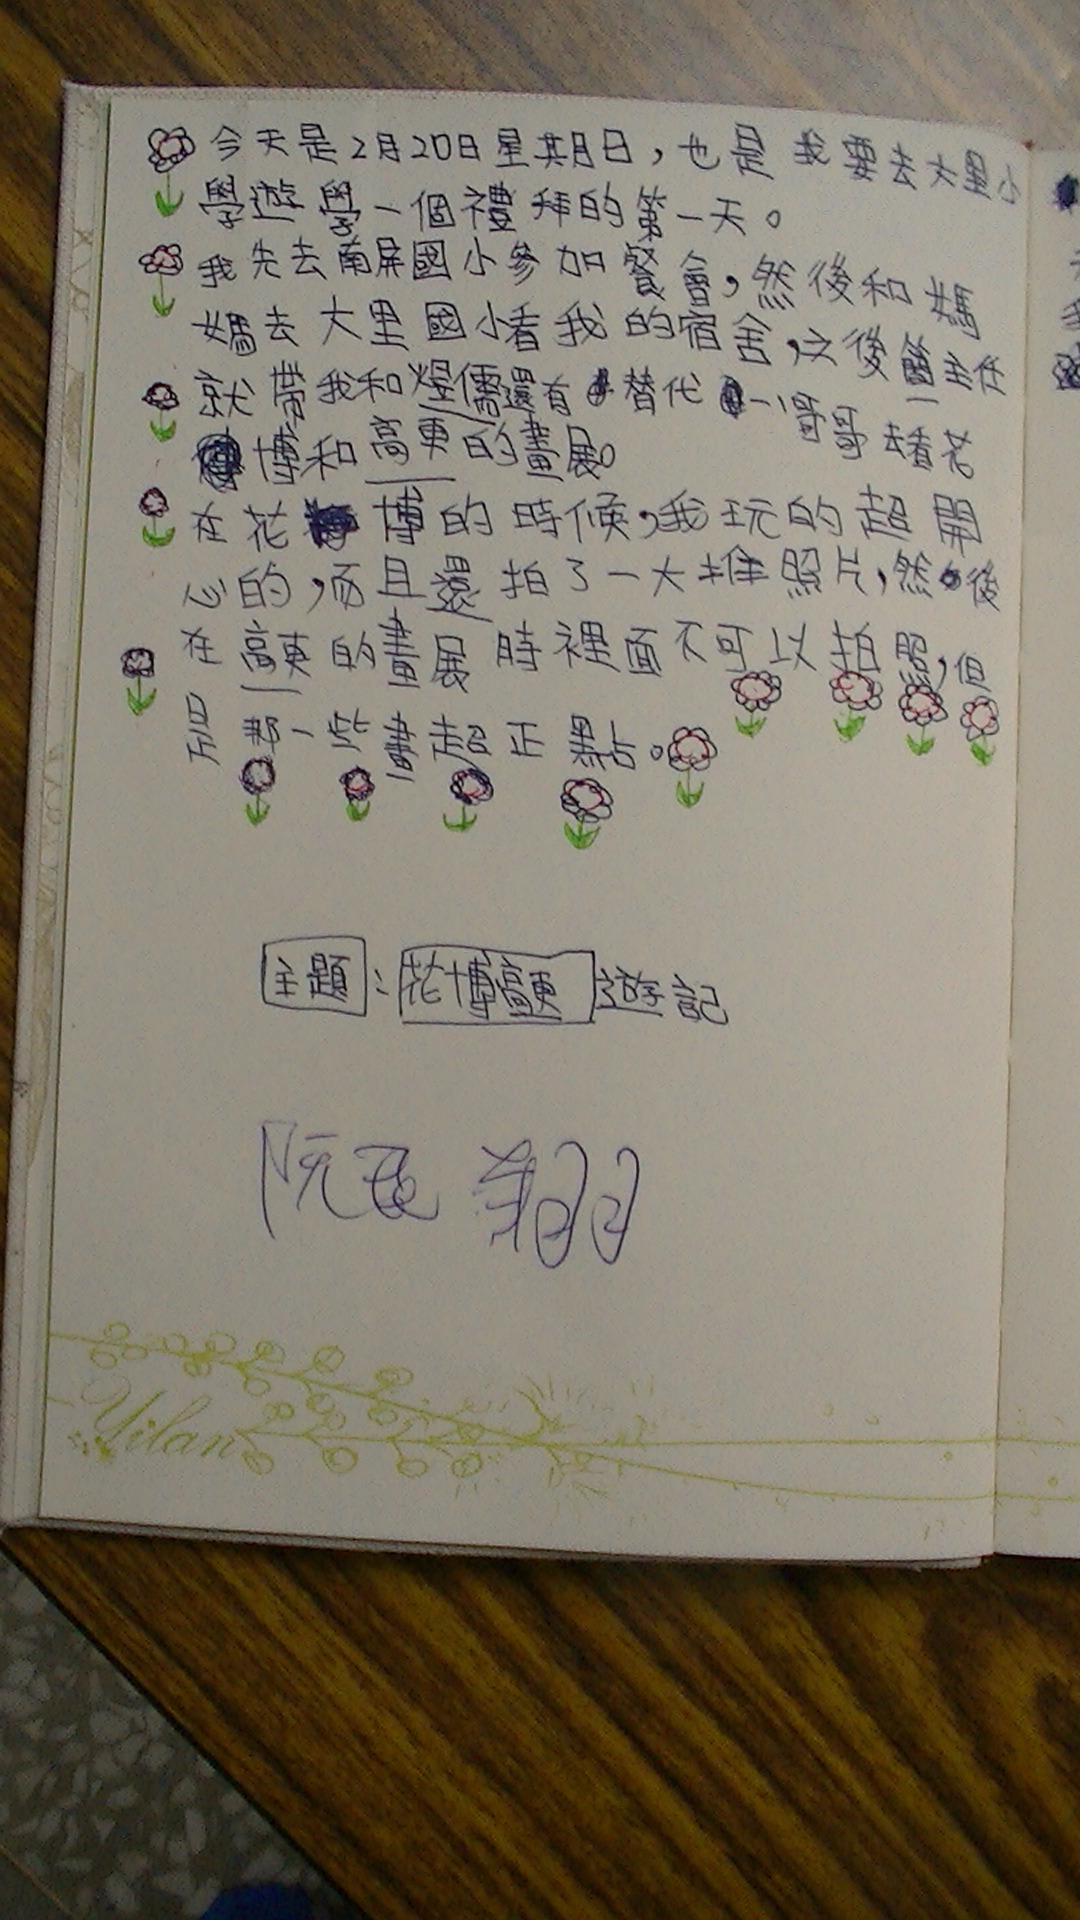 今天是2月20日星其月日,也是我要去大里小
學遊學一個禮拜的第一天。
我先去南屏國小參加餐會,然後和媽
媽去大里國小看我的宿舍,之後簡主任
就帶我和煜儒還有替代 哥哥去看花
博和高更的畫展。
在花博的時候,我玩的超開
心的,而且還拍了一大堆照片,然後
在高更的畫展時裡面不可以拍照,但
是那一些畫超正點。
主題:花博高更遊記
Yilan